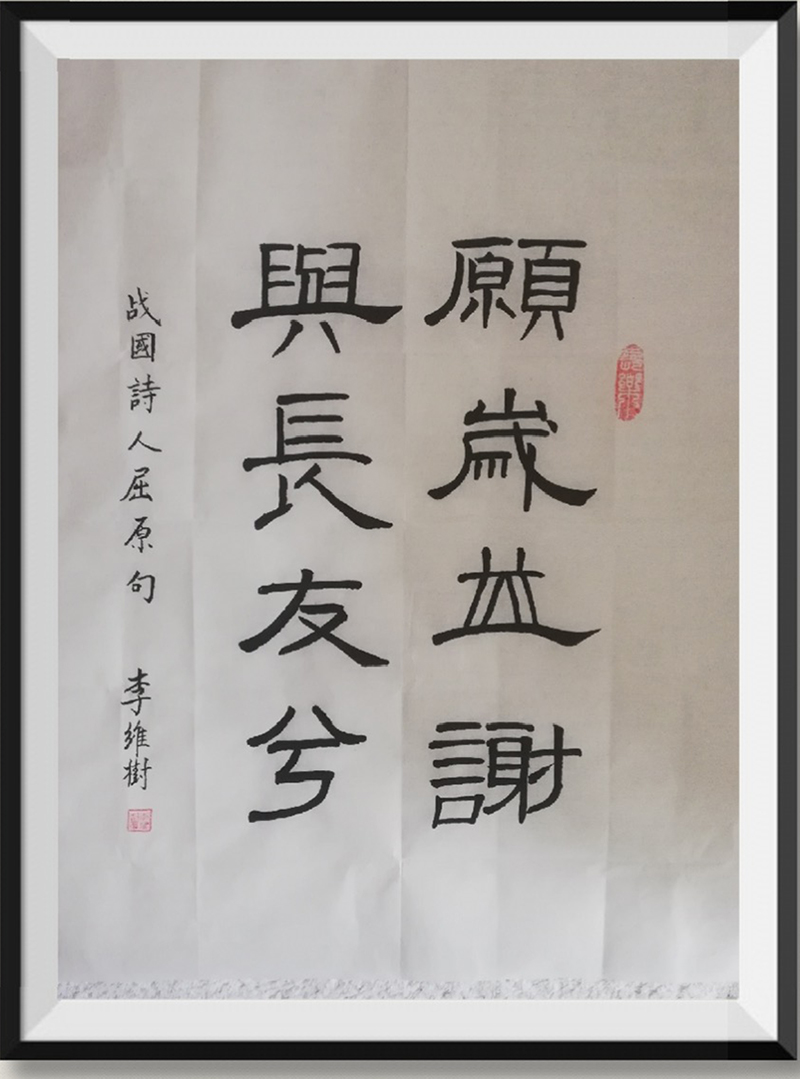 願歲並謝
與長友兮
战國詩人屈原句
李維樹